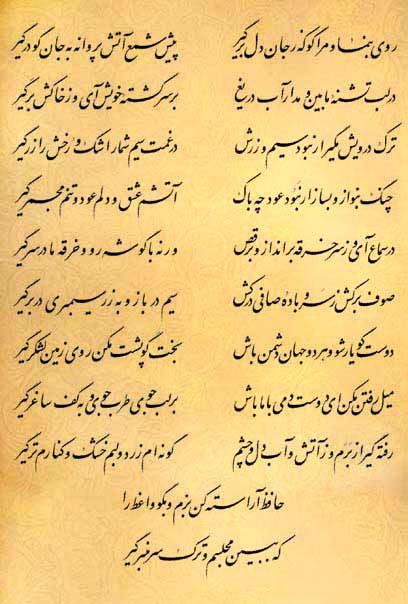 روی بنما و مرا گو که ز جان دل برگیر پیش شمع آتش پروانه به جان گو درگیر
در لب تشنهٔ ما بین و مدار آب دریغ بر سر کشتهٔ خویش آی و ز خاکش برگیر
ترک درویش مگیر ار نبود سیم و زرش در غمت سیم شمار اشک و رخش را زر گیر
چنگ بنواز و بساز ار نبود عود چه باک آتشم عشق و دلم عود و تنم مجمر گیر
در سماع آی و ز سر خرقه برانداز و برقص ورنه با گوشه رو و خرقه ما در سر گیر
صوف برکش ز سر و بادهٔ صافی درکش سیم درباز و به زر سیمبری در بر گیر
دوست گو یار شو و هر دو جهان دشمن باش بخت گو پشت مکن روی زمین لشکر گیر
میل رفتن مکن ای دوست دمی با ما باش بر لب جوی طرب جوی و به کف ساغر گیر
رفته گیر از برم و ز آتش و آب دل و چشم گونه‌ام زرد و لبم خشک و کنارم تر گیر
حافظ آراسته کن بزم و بگو واعظ را
که ببین مجلسم و ترک سر منبر گیر